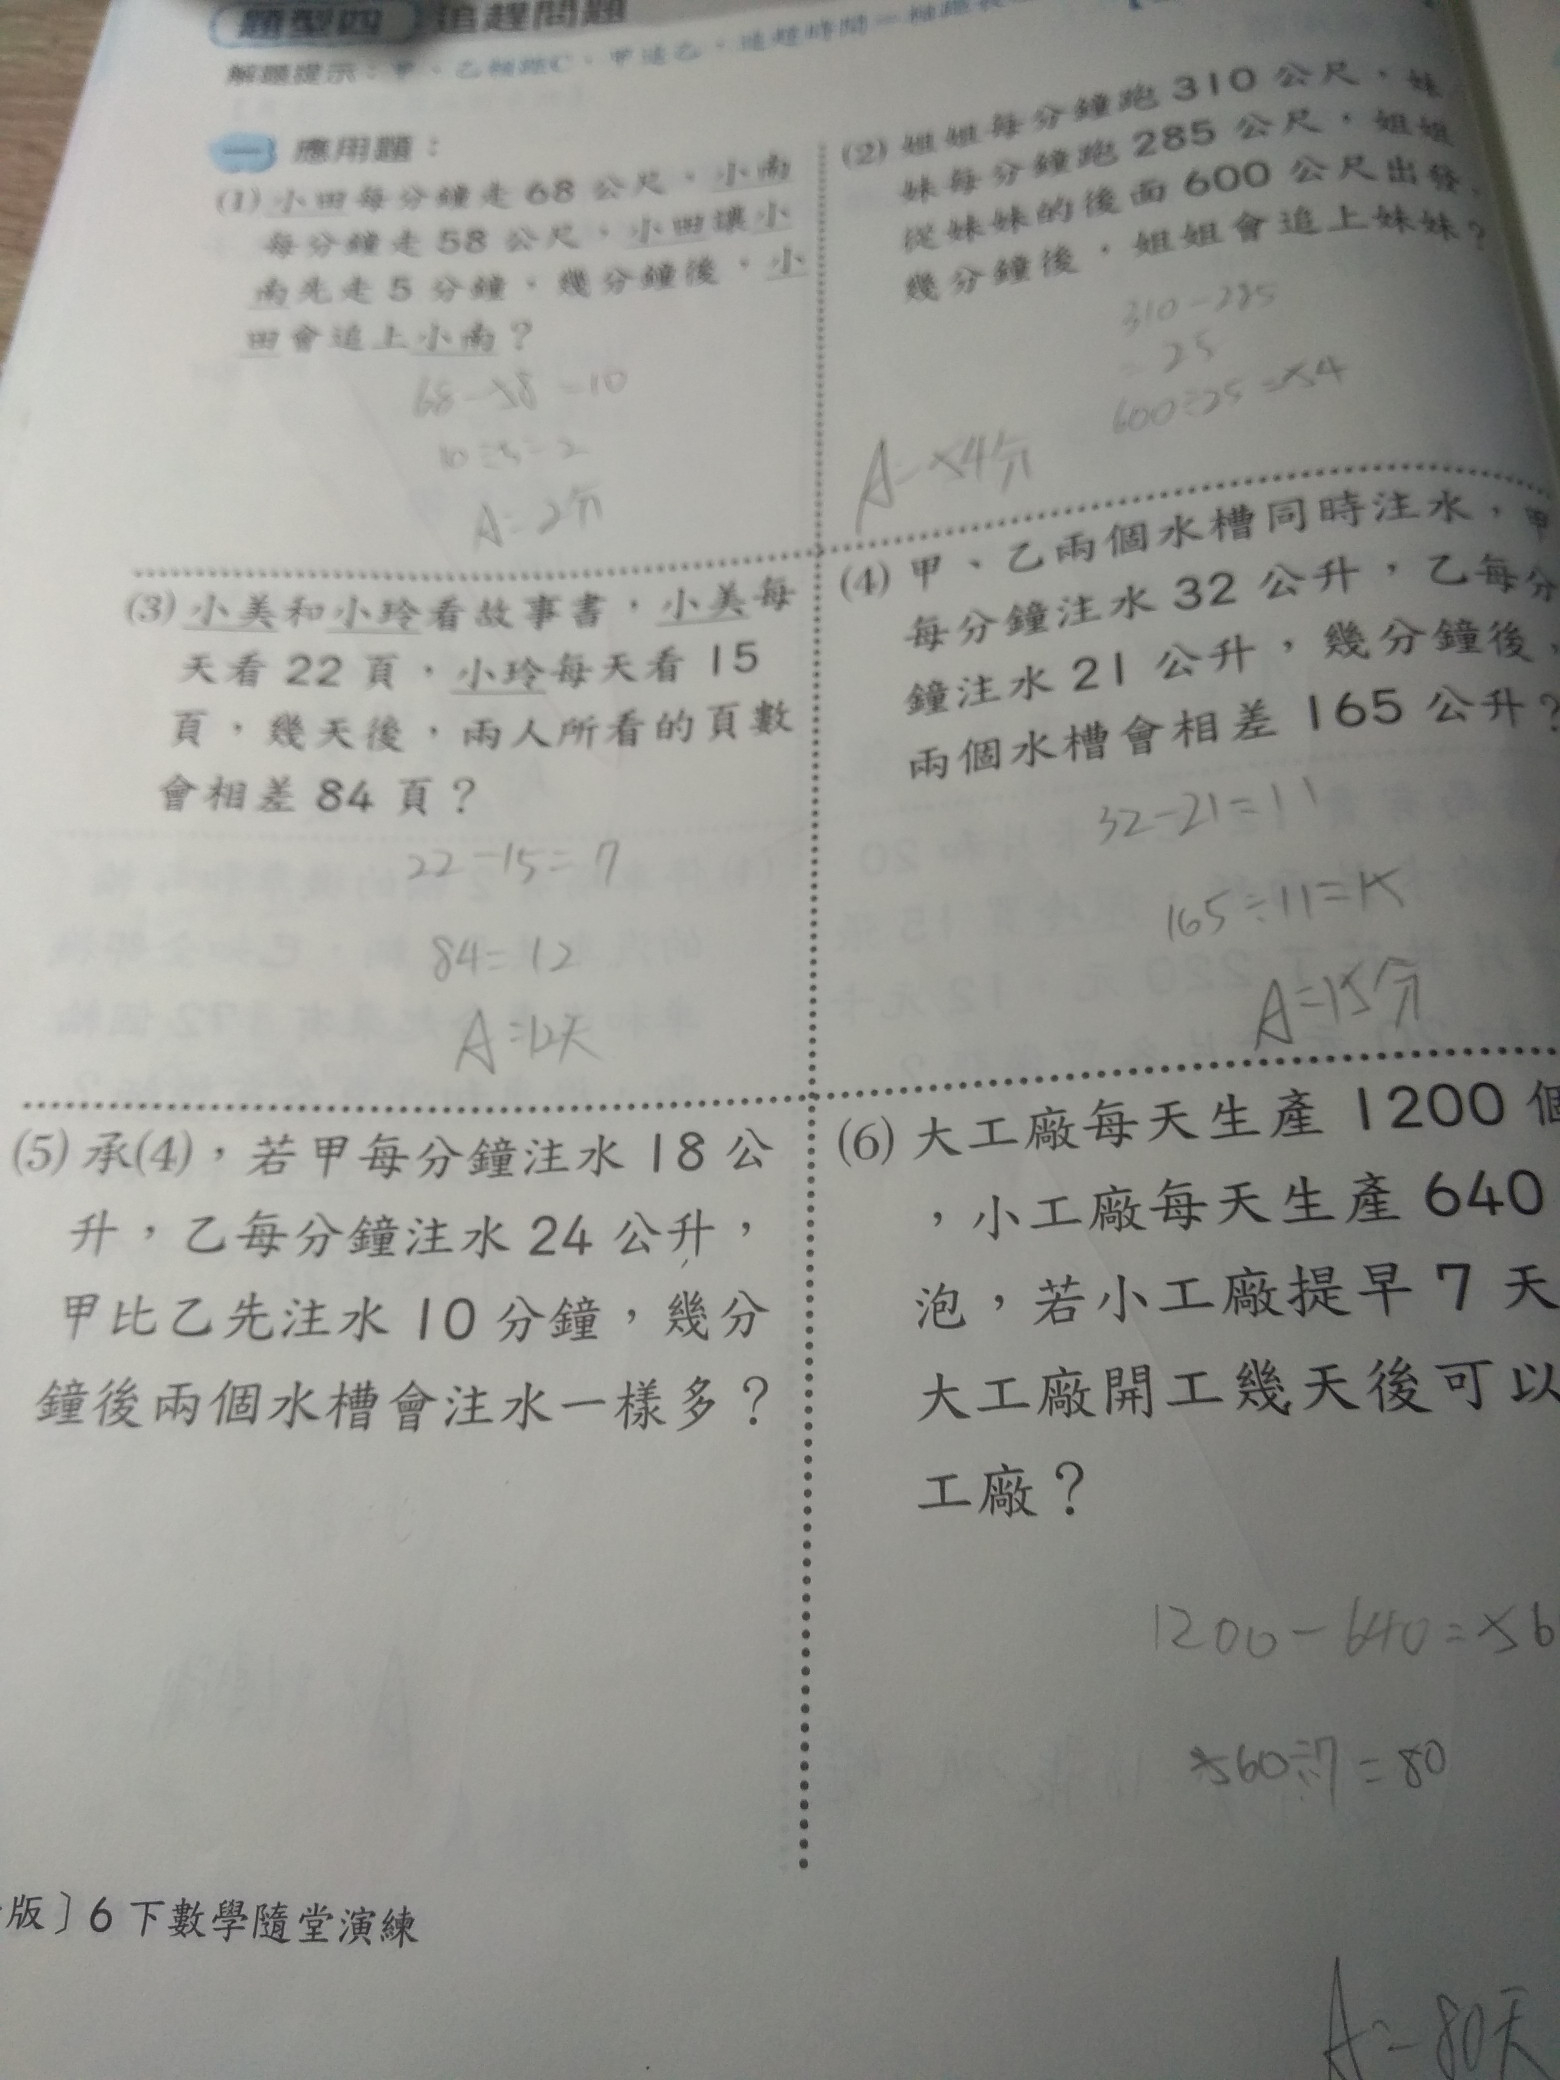 題型四 追趕問題
解題提示：甲、乙相距C，甲追乙，追趕時間＝相距
一 應用題：
(1) 小田每分鐘走 68 公尺，小南
每分鐘走 58 公尺，小田讓小
南先走 5 分鐘，幾分鐘後，小
田會追上小南？
68-58=10
10÷5=2
A=2分
(2) 姐姐每分鐘跑 310 公尺，妹
妹每分鐘跑 285 公尺，姐姐
從妹妹的後面 600 公尺出發，
幾分鐘後，姐姐會追上妹妹？
310-285
=25
600÷25=54
A=54分
(3) 小美和小玲看故事書，小美每
天看 22 頁，小玲每天看 15
頁，幾天後，兩人所看的頁數
會相差 84 頁？
22-15=7
84=12
A=12天
(4) 甲、乙兩個水槽同時注水，甲
每分鐘注水 32 公升，乙每分
鐘注水 21 公升，幾分鐘後，
兩個水槽會相差 165 公升？
32-21=11
165÷11=15
A=15分
(5) 承(4)，若甲每分鐘注水 18 公
升，乙每分鐘注水 24 公升，
甲比乙先注水 10 分鐘，幾分
鐘後兩個水槽會注水一樣多？
(6) 大工廠每天生產 1200 個
，小工廠每天生產 640
泡，若小工廠提早 7 天
大工廠開工幾天後可以
工廠？
1200-640=56
560÷7=80
A=80天
版〕6 下數學隨堂演練